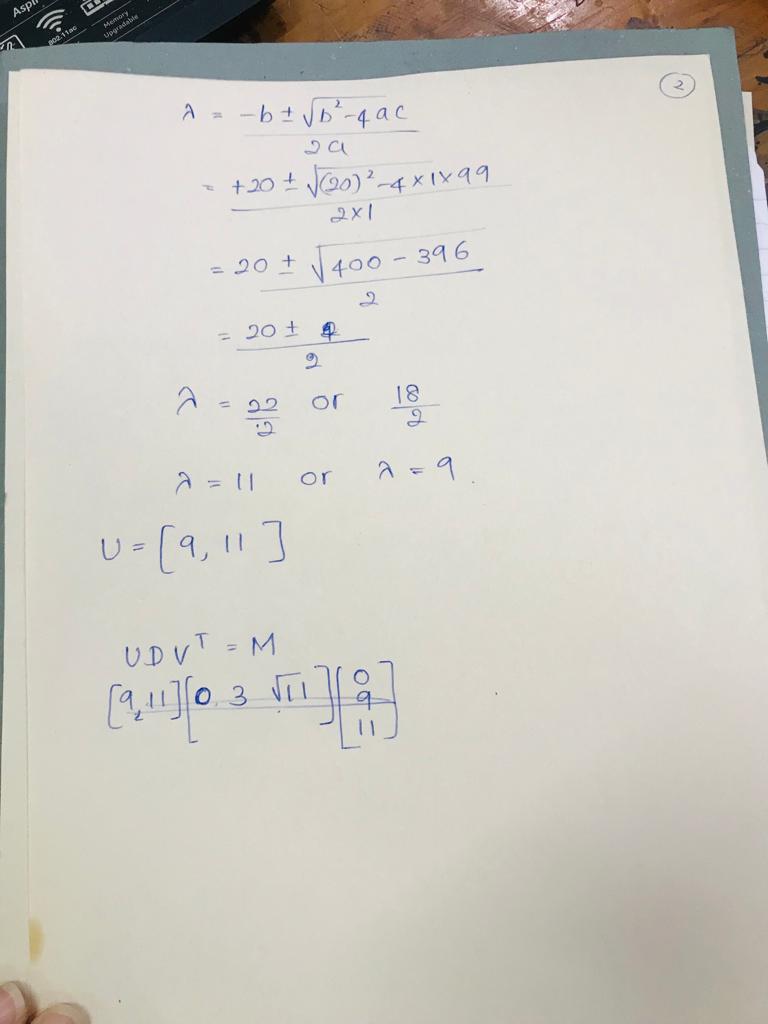 Aspi
802.11ac
Memory
Upgradable
2
λ = -b ± √b²-4ac
2a
= +20 ± √(20)²-4×1×99
2×1
= 20 ± √400 - 396
2
= 20 ± 2
2
λ = 22 or 18
2 2
λ = 11 or λ = 9.
U = [9, 11]
UDVᵀ = M
[9, 11][0 3 √11][0
9
11]